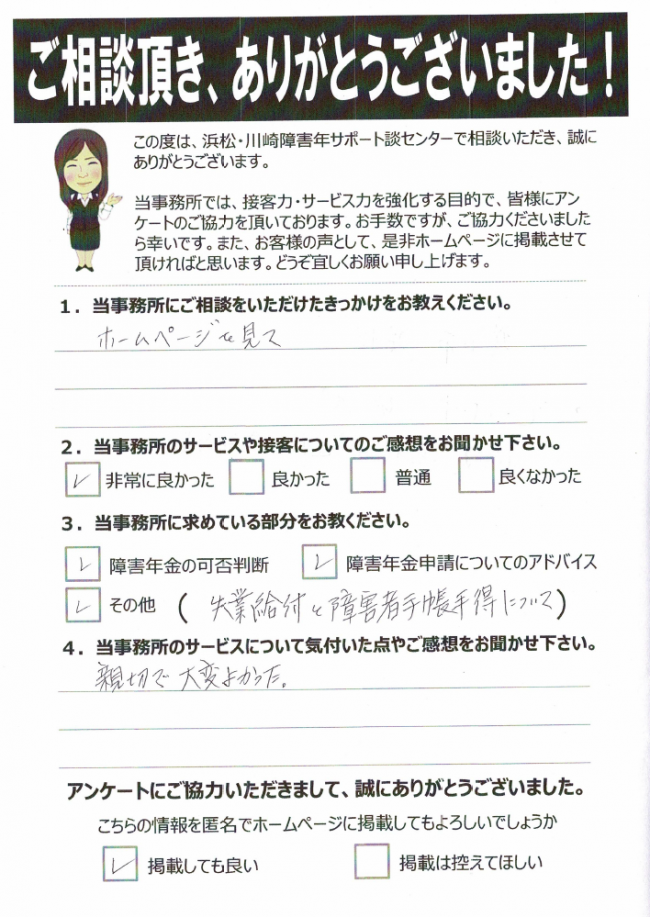 ご相談頂き、ありがとうございました！
この度は、浜松・川崎障害年サポート談センターで相談いただき、誠に
ありがとうございます。
当事務所では、接客力・サービス力を強化する目的で、皆様にアン
ケートのご協力を頂いております。お手数ですが、ご協力くださいました
ら幸いです。また、お客様の声として、是非ホームページに掲載させて
頂ければと思います。どうぞ宜しくお願い申し上げます。
１．当事務所にご相談をいただけたきっかけをお教えください。
ホームページを見て
２．当事務所のサービスや接客についてのご感想をお聞かせ下さい。
✓ 非常に良かった 良かった 普通 良くなかった
３．当事務所に求めている部分をお教ください。
✓ 障害年金の可否判断 ✓ 障害年金申請についてのアドバイス
✓ その他 ( 失業給付と障害者手帳手得について)
４．当事務所のサービスについて気付いた点やご感想をお聞かせ下さい。
親切で大変よかった。
アンケートにご協力いただきまして、誠にありがとうございました。
こちらの情報を匿名でホームページに掲載してもよろしいでしょうか
✓ 掲載しても良い 掲載は控えてほしい